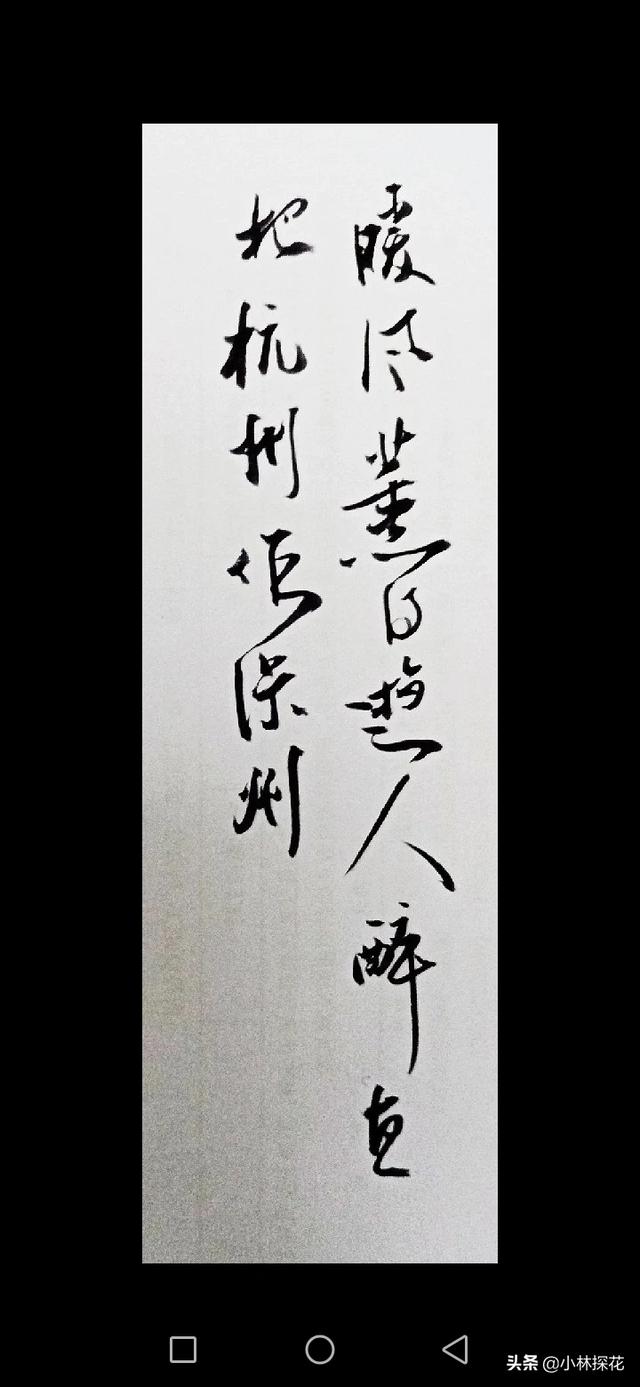 暖风薰得遊人醉直
把杭州作深州
头条 @小林探花